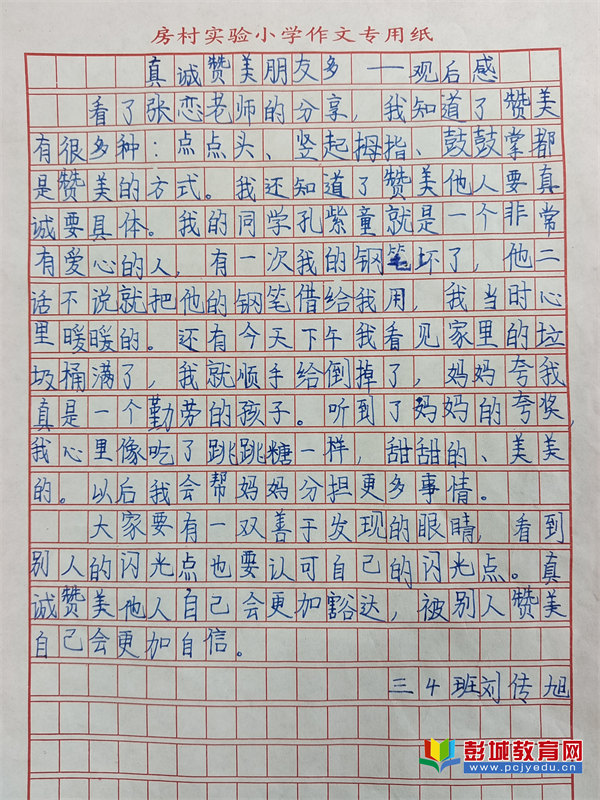 房村实验小学作文专用纸
真诚赞美朋友多——观后感
看了张恋老师的分享，我知道了赞美
有很多种：点点头、竖起拇指、鼓鼓掌都
是赞美的方式。我还知道了赞美他人要真
诚要具体。我的同学孔紫童就是一个非常
有爱心的人，有一次我的钢笔坏了，他二
话不说就把他的钢笔借给我用，我当时心
里暖暖的。还有今天下午我看见家里的垃
圾桶满了，我就顺手给倒掉了，妈妈夸我
真是一个勤劳的孩子。听到了妈妈的夸奖，
我心里像吃了跳跳糖一样，甜甜的、美美
的。以后我会帮妈妈分担更多事情。
大家要有一双善于发现的眼睛，看到
别人的闪光点也要认可自己的闪光点。真
诚赞美他人自己会更加豁达，被别人赞美
自己会更加自信。
三4班刘传旭
彭城教育网
www.pcjyedu.cn